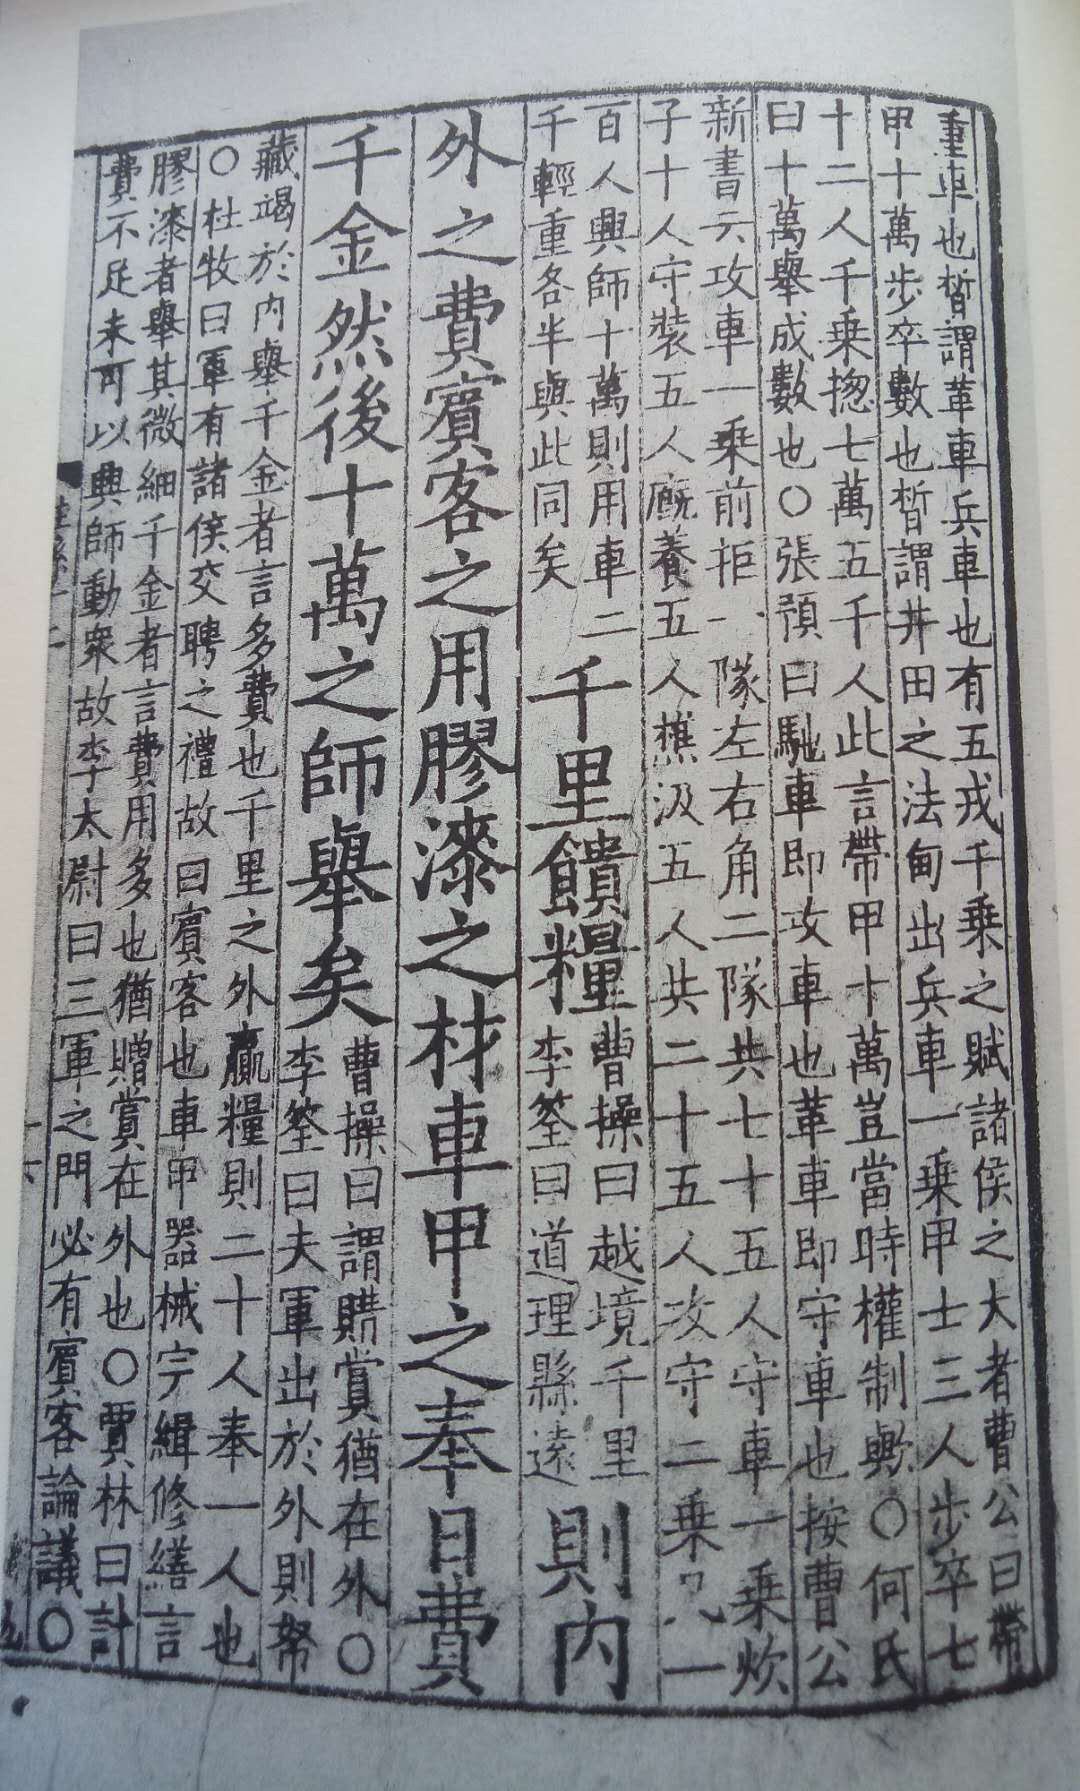 重車也晳謂革車兵車也有五戎千乘之賦諸侯之大者曹公曰帶
甲十萬步卒數也晳謂井田之法甸出兵車一乘甲士三人步卒七
十二人千乘揔七萬五千人此言帶甲十萬豈當時權制歟○何氏
曰十萬舉成數也○張預曰馳車即攻車也革車即守車也按曹公
新書云攻車一乘前拒一隊左右角二隊共七十五人守車一乘炊
子十人守裝五人廐養五人樵汲五人共二十五人攻守二乘凡一
百人興師十萬則用車二
千輕重各半與此同矣
千里饋糧
曹操曰越境千里
李筌曰道理縣遠
則内
外之費賓客之用膠漆之材車甲之奉日費
千金然後十萬之師舉矣
曹操曰謂賭賞猶在外○
李筌曰夫軍出於外則帑
藏竭於内舉千金者言多費也千里之外贏糧則二十人奉一人也
○杜牧曰軍有諸侯交聘之禮故曰賓客也車甲器械完緝修繕言
膠漆者舉其微細千金者言費用多也猶贈賞在外也○賈林曰計
費不足未可以興師動衆故李太尉曰三軍之門必有賓客論議○